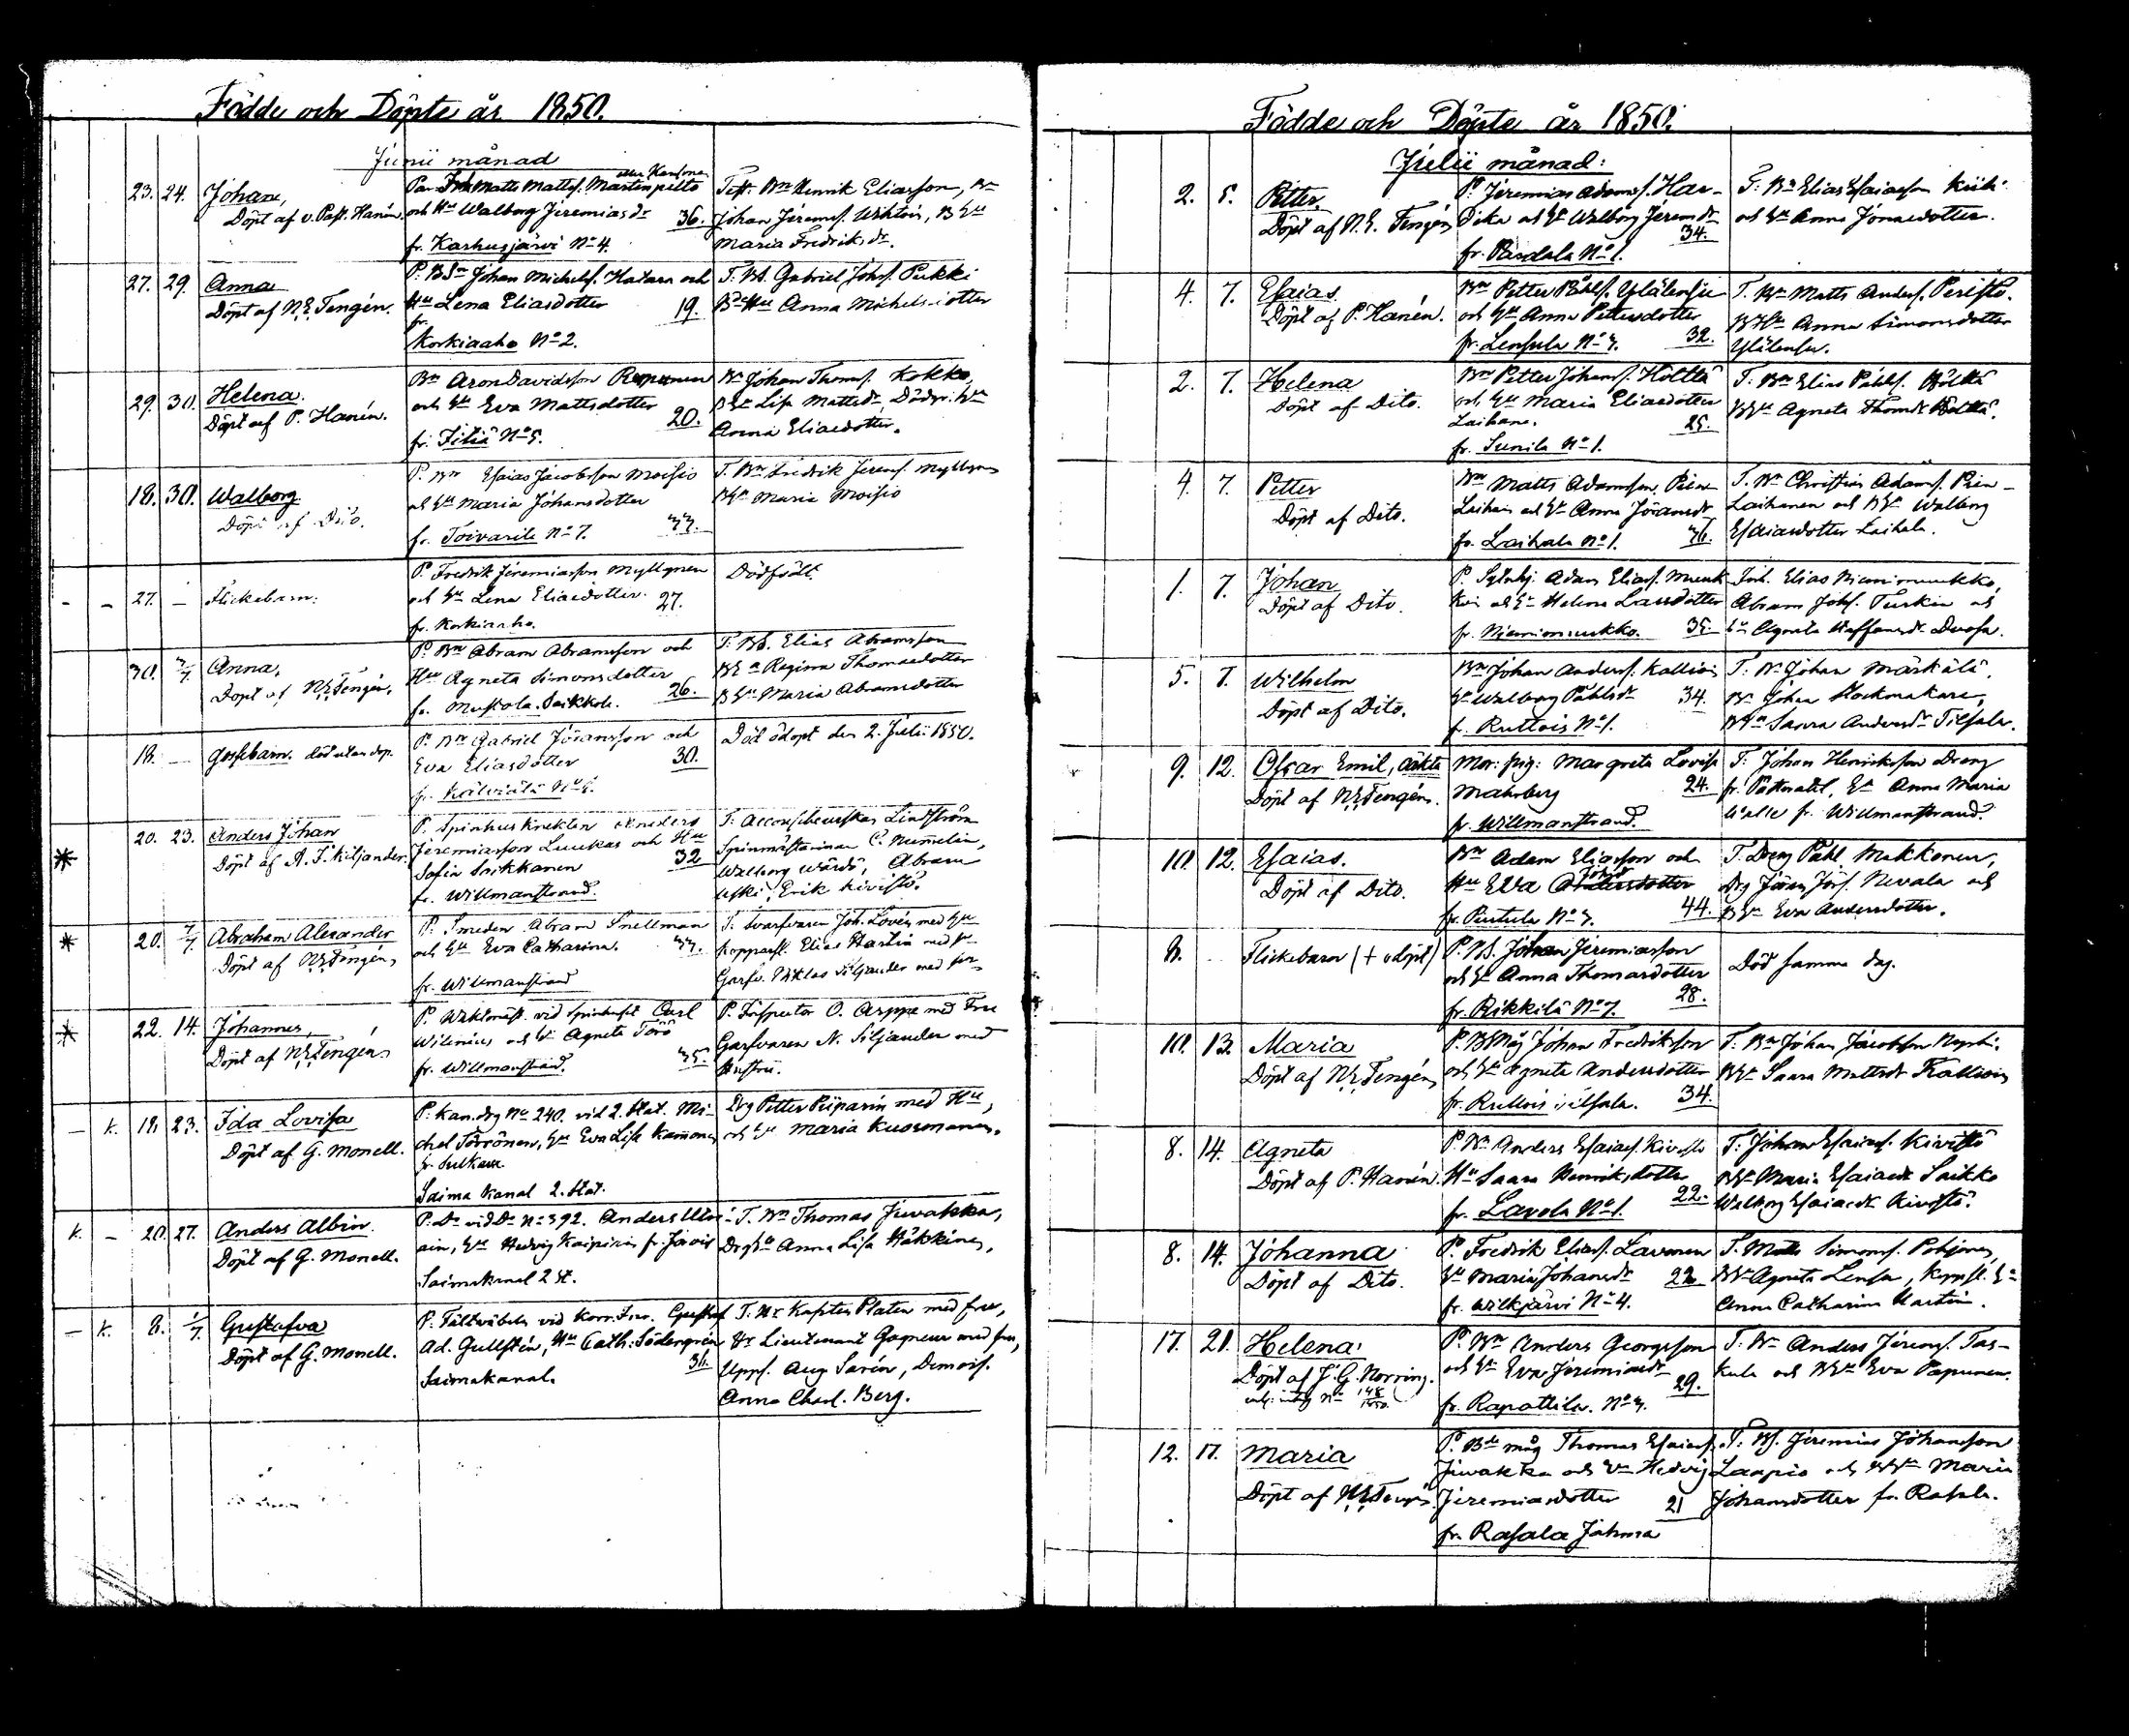 Födde och Döpte år 1850.
Junii månad
23. 24. Johan,
Döpt af v. Past. Hanén.
Matts Mattss. Martinpelto
och Hu Walborg Jeremiasdr 36.
fr. Karhusjärvi No 4.
Test. Bn Henrik Eliasson, Bn
Johan Jeremss. BHu
Maria Fredriksdr.
27. 29. Anna
Döpt af N. E. Fengén.
P. BSn Johan Michelss. Hatara och
Hu Lena Eliasdotter 19.
fr.
Korkiaaho No 2.
T. BS. Gabriel Johss. Pukki
Anna Michelsdotter
29. 30. Helena.
Döpt af P. Hanén.
Bn Aron Davidsson
och Hu Eva Mattsdotter 20.
fr. No 5.
Bn Johan Thomss. Kokko,
BHu Lisa Mattsdr
Anna Eliasdotter.
18. 30. Walborg
Döpt af Dito.
P. Bn Esaias Jacobsson Moisio
och Hu Maria Johansdotter
fr. Toivarila No 7. 33.
T. Bn Fredrik Jeremss. Myllynen
BHu Maria Moisio
- - 27. - Flickebarn.
P. Fredrik Jeremiasson Myllynen
och Hu Lena Eliasdotter. 27.
fr. Korkiaaho.
Dödfödt.
30. 7/7. Anna,
Döpt af N. E. Fengén,
P. Bn Abram Abramsson och
Hu Agneta Simonsdotter
fr. Mustola. 26.
T. BS. Elias Abramsson
BHu Regina Thomasdotter
BHu Maria Abramsdotter
18. - Gossebarn. död utan dop.
P. Bn Gabriel Jöransson och
Eva Eliasdotter 30.
Död odöpt den 2. Julii 1850.
20. 23. Anders Johan
Döpt af A. F. Kiljander.
P. Spinhusknekten Anders
Jeremiasson Luukas och Hu
Sofia Saikkanen 32
fr. Willmanstrand.
T. Accoucheurskan Lindström
Spinmästarinnan C. Nummelin,
Walborg Wärdö, Abram
Uski, Erik Kivistö.
20. 7/7. Abraham Alexander
Döpt af N. E. Fengén,
P. Smeden Abram Snellman
och Hu Eva Catharina. 33.
fr. Willmanstrand
T. Svarfvaren Joh. Lovén med Hu
Elias Hartin med
Garfv. Niklas Siljander med
22. 14. Johannes,
Döpt af N. E. Fengén,
P. Waktmäst. vid spinhuset Carl
Wilenius och Hu Agneta Törö
fr. Willmanstrand. 35.
P. Inspector O. Arppe med Fru
Garfvaren N. Siljander med
Hustru.
- k. 18. 23. Ida Lovisa
Döpt af G. Monell.
P. Kan.drg No 240. vid 2. Stat. Mi-
chel Törrönen, Hu Eva Lisa
fr. Sulkava.
Saima Kanal 2. Stat.
Drg Petter Piiparin med Hu,
och Hu Maria Kuosmanen.
k. - 20. 27. Anders Albin.
Döpt af G. Monell.
P. Dn vid Dn No 392. Anders
Hu Hedvig Kaipiain
Saimakanal 2 St.
T. Bn Thomas Juvakka,
Drghu Anna Lisa Häkkinen,
- k. 8. 1/7. Gustafva
Döpt af G. Monell.
P. Fältväbeln vid Gustaf
Ad. Gullstén, Hu Cath. Södergrén
Saimakanal. 36.
T. Hr Kapten Platen med fru,
Hr Lieutenant Gagneur med fru,
Upps. Aug Sarén, Demois.
Anna Charl. Berg.
Födde och Döpte år 1850.
Julii månad:
2. 5. Petter,
Döpt af N. E. Fengén,
P. Jeremias Adamss. Har-
Dika och Hu Walborg Jeremdr
34.
fr. Pardala No 1.
T. Bn Elias Esaiasson
och Hu Anna Jönasdotter.
4. 7. Esaias
Döpt af P. Hanén.
Bn Petter Påhlss. Ylälensu
och Hu Anna Pettersdotter
fr. Lensula No 3. 32.
T. Bn Matts Anderss. Peristö.
BHu Anna Simonsdotter
Ylälensu.
2. 7. Helena
Döpt af Dito.
Bn Petter Johanss. Hölttä
och Hu Maria Eliasdotter
Laihane. 25.
fr. Sunila No 1.
T. Bn Elias Påhlss. Hölttä
BHu Agneta Thomdr Hölttä.
4. 7. Petter
Döpt af Dito.
Bn Matts Adamsson Pien-
Laihain och Hu Anna Jöransdr
fr. Laihala No 1. 36.
T. Bn Christian Adamss. Pien-
Laihanen och BHu Walborg
Esaiasdotter Laihala.
1. 7. Johan
Döpt af Dito.
P. Sytnhj. Adam Eliass. Munk-
och Hu Helena Larsdotter
fr. Niemimunkko. 35.
Inh. Elias Niemimunkko,
Abram Johss. Turkia och
Hu Agneta Staffansdr
5. 7. Wilhelm
Döpt af Dito.
Bn Johan Anderss. Kallioin
Hu Walborg Påhlsdr 34.
fr. Ruttois No 1.
T. Bn Johan Märkälä.
Bn Johan Klockmakare,
BHu Saara Andersdr Tilsala.
9. 12. Oscar Emil, oäkta
Döpt af N. E. Fengén.
Mor: pig: Margreta Lovisa
Malmberg 24.
fr. Willmanstrand.
T. Johan Henricksson Dreng
Hu Anna Maria
fr. Willmanstrand.
10. 12. Esaias.
Döpt af Dito.
Bn Adam Eliasson och
Hu Eva Andersdotter
fr. Pentula No 3. 44.
T. Dreng Påhl Mukkonen,
Drg Jöran Jörss. Nevala och
BHu Eva Andersdotter.
8. - Flickebarn (+ odöpt)
P. BS. Johan Jeremiasson
och Hu Anna Thomasdotter
fr. Rikkilä No 7. 28.
Död samma dag.
10. 13. Maria
Döpt af N. E. Fengén,
P. BMåg Johan Fredriksson
och Hu Agneta Andersdotter
fr. Ruttois Tilsala. 34.
T. Bn Johan Jacobsson
BHu Saara Mattsdr Kallioin
8. 14. Agneta
Döpt af P. Hanén.
P. Bn Anders Esaiass. Kivistö
Hu Saara Henriksdotter
fr. Lavola No 1. 22.
T. Johan Esaiass. Kivistö
BHu Maria Esaiasdr Saikko
Walborg Esaiasdr Kivistö.
8. 14. Johanna
Döpt af Dito.
P. Fredrik Eliass. Lavonen
Hu Maria Johansdr 22
fr. Wilkjärvi No 4.
T. Matts Simonss. Pohjonen,
BHu Agneta Lensu,
Anna Catharina Hartin.
17. 21. Helena.
Döpt af J. G. Norring.
enl. intyg No 148/1850.
P. Bn Anders Georgsson
och Hu Eva Jeremiasdr
29.
fr. Rapattila. No 3.
T. Bn Anders Jeremss. Tas-
kula och BHu Eva Papunen.
12. 17. Maria
Döpt af N. E. Fengén.
P. Bde måg Thomas Esaiass.
Juvakka och Hu Hedvig
Jeremiasdotter 21
fr. Rasala Juhma
T. BS. Jeremias Johansson
Laapio och BHu Maria
Johansdotter fr. Rasala.